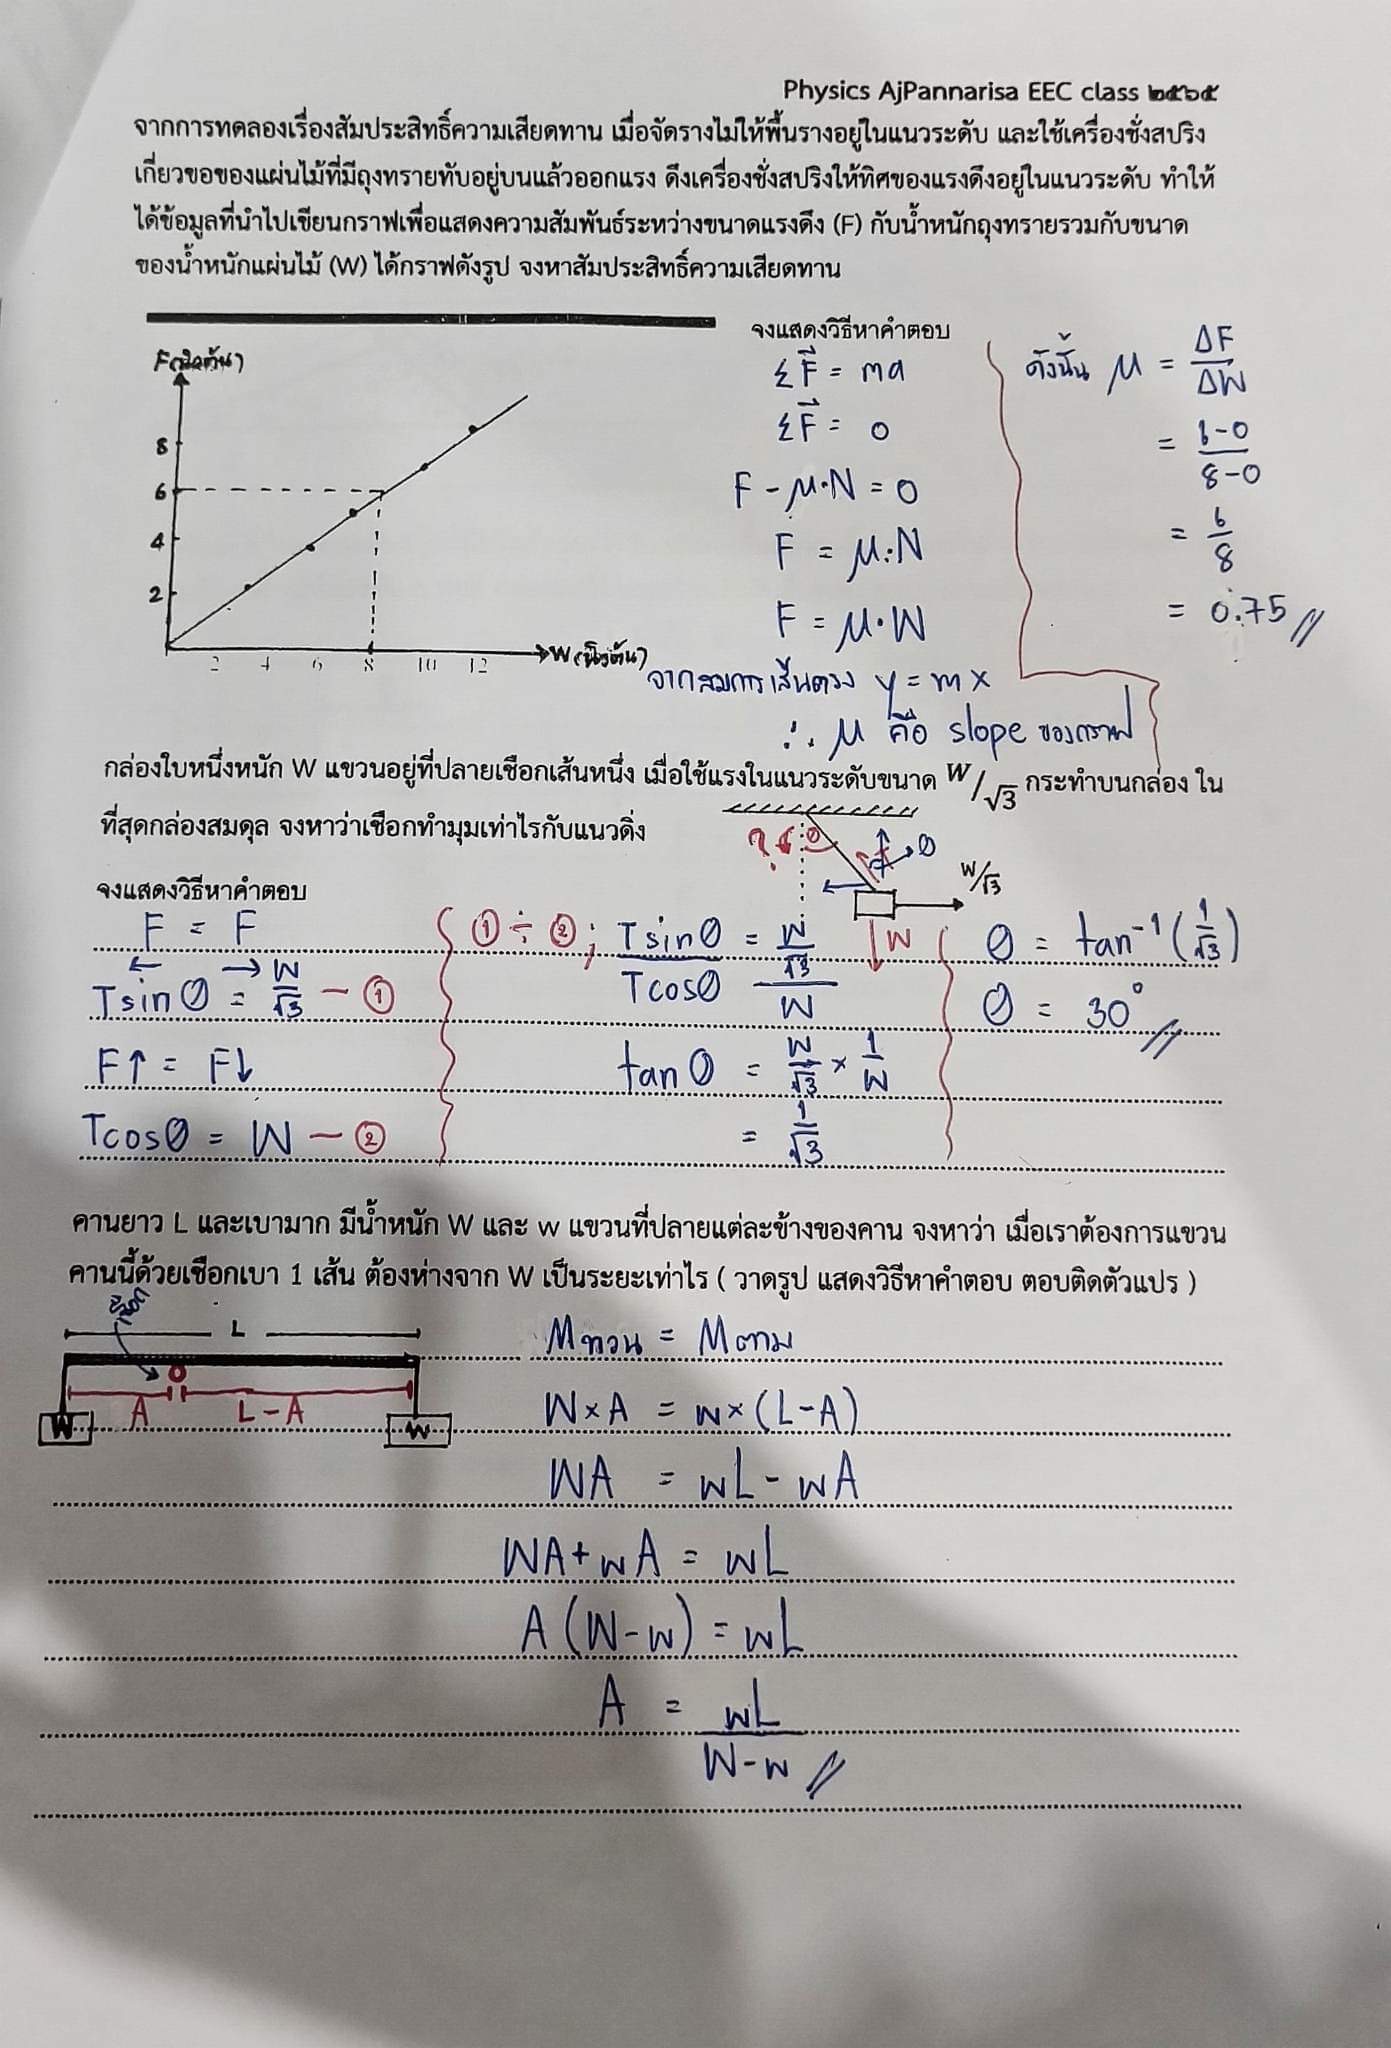 Physics AjPannarisa EEC class ๒๕๖๕
จากการทดลองเรื่องสัมประสิทธิ์ความเสียดทาน เมื่อจัดรางไม้ให้พื้นรางอยู่ในแนวระดับ และใช้เครื่องชั่งสปริง
เกี่ยวขอของแผ่นไม้ที่มีถุงทรายทับอยู่บนแล้วออกแรง ดึงเครื่องชั่งสปริงให้ทิศของแรงดึงอยู่ในแนวระดับ ทำให้
ได้ข้อมูลที่นำไปเขียนกราฟเพื่อแสดงความสัมพันธ์ระหว่างขนาดแรงดึง (F) กับน้ำหนักถุงทรายรวมกับขนาด
ของน้ำหนักแผ่นไม้ (W) ได้กราฟดังรูป จงหาสัมประสิทธิ์ความเสียดทาน
F(นิวตัน)
8
6
4
2
2 4 6 8 10 12
W (นิวตัน)
จงแสดงวิธีหาคำตอบ
ΣF⃗ = ma
ΣF⃗ = 0
F - μ·N = 0
F = μ·N
F = μ·W
จากสมการเส้นตรง y = mx
∴ μ คือ slope ของกราฟ
ดังนั้น μ = ΔF/ΔW
= 6-0/8-0
= 6/8
= 0.75 //
กล่องใบหนึ่งหนัก W แขวนอยู่ที่ปลายเชือกเส้นหนึ่ง เมื่อใช้แรงในแนวระดับขนาด W/√3 กระทำบนกล่อง ใน
ที่สุดกล่องสมดุล จงหาว่าเชือกทำมุมเท่าไรกับแนวดิ่ง
θ
θ
W/√3
W
จงแสดงวิธีหาคำตอบ
F← = F→
Tsinθ = W/√3 — ①
F↑ = F↓
Tcosθ = W — ②
① ÷ ②; Tsinθ/Tcosθ = W/√3/W
tanθ = W/√3 × 1/W
= 1/√3
θ = tan⁻¹(1/√3)
θ = 30° //
คานยาว L และเบามาก มีน้ำหนัก W และ w แขวนที่ปลายแต่ละข้างของคาน จงหาว่า เมื่อเราต้องการแขวน
คานนี้ด้วยเชือกเบา 1 เส้น ต้องห่างจาก W เป็นระยะเท่าไร ( วาดรูป แสดงวิธีหาคำตอบ ตอบติดตัวแปร )
L
A
L-A
W
w
Mทวน = Mตาม
W×A = w×(L-A)
WA = wL - wA
WA+wA = wL
A(W-w) = wL
A = wL/W-w //